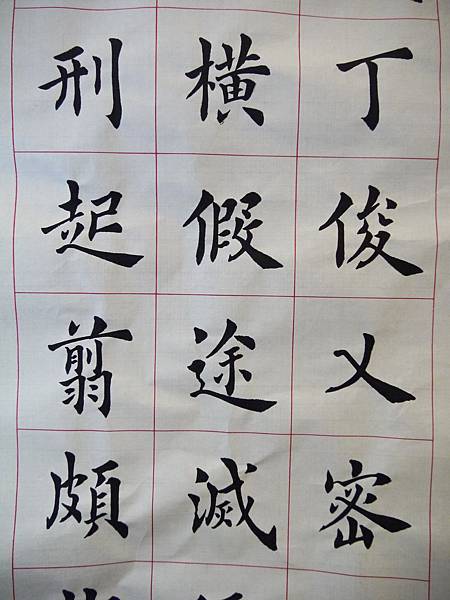 丁俊乂密
橫假途滅
刑起翦頗